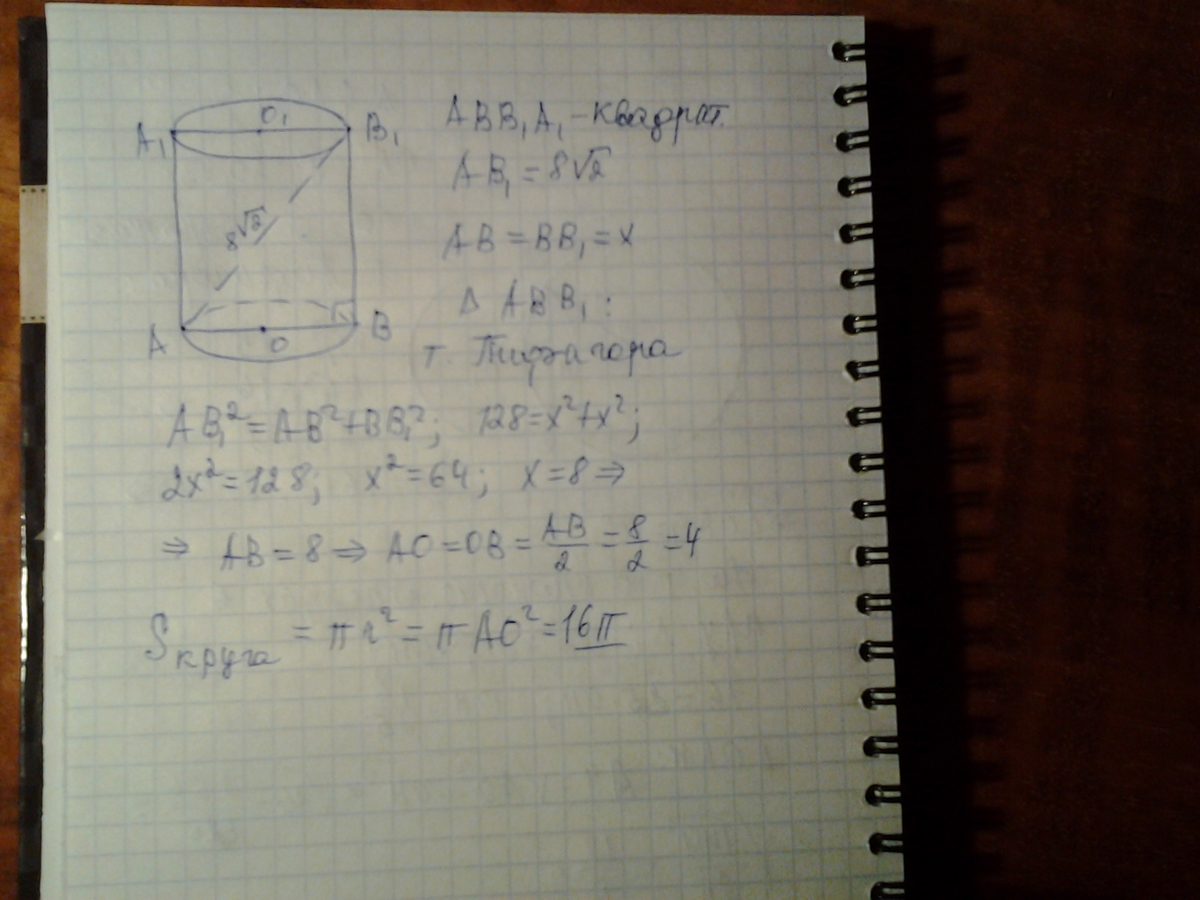 A₁ O₁ B₁
8√2
A O B
ABB₁A₁ – квадрат.
AB₁ = 8√2
AB = BB₁ = x
Δ ABB₁ :
т. Пифагора
AB₁² = AB² + BB₁²; 128 = x² + x²;
2x² = 128; x² = 64; x = 8 ⇒
⇒ AB = 8 ⇒ AO = OB = AB/2 = 8/2 = 4
S круга = πr² = πAO² = 16π